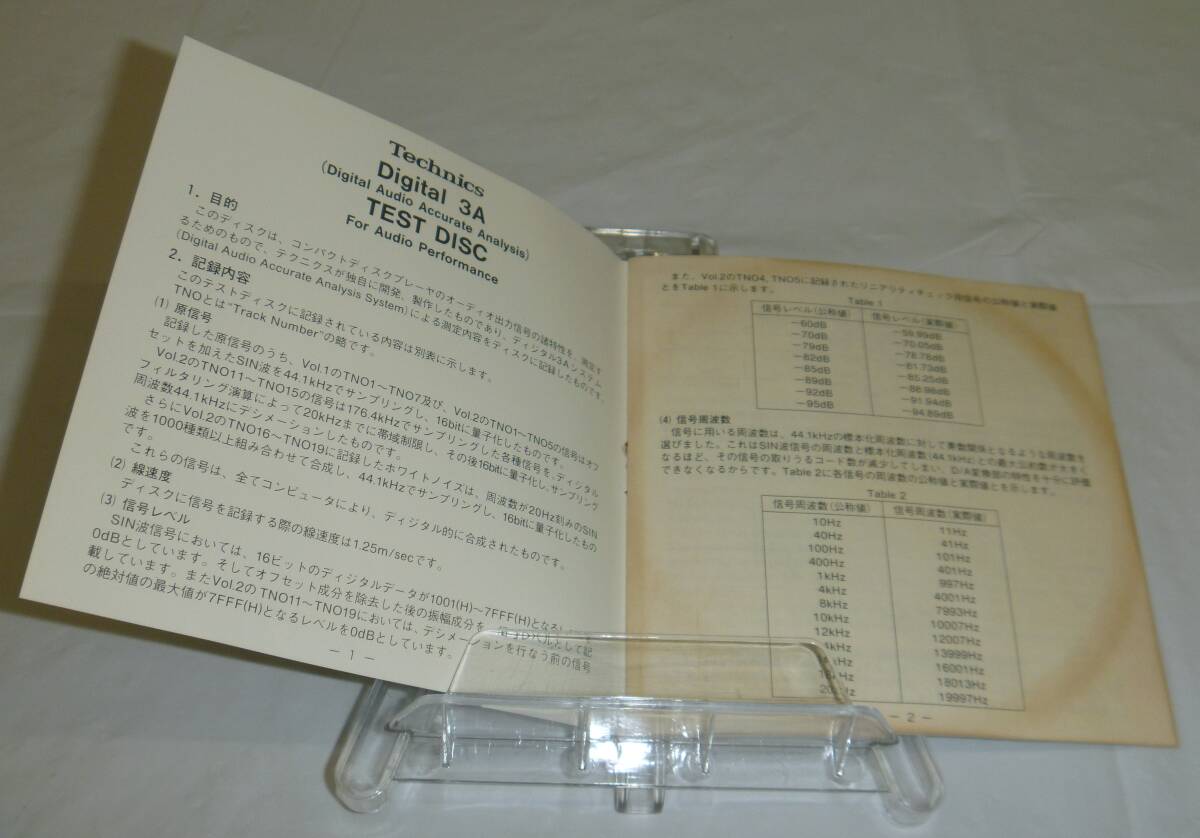 Technics
Digital 3A
(Digital Audio Accurate Analysis)
TEST DISC
For Audio Performance
1. 目的
このディスクは、コンパクトディスクプレーヤのオーディオ出力信号の諸特性を、測定す
るためのもので、テクニクスが独自に開発、製作したものであり、ディジタル3Aシステム
(Digital Audio Accurate Analysis System)による測定内容をディスクに記録したものです。
2. 記録内容
このテストディスクに記録されている内容は別表に示します。
TNOとは"Track Number"の略です。
(1) 原信号
記録した原信号のうち、Vol.1のTNO1〜TNO7及び、Vol.2のTNO1〜TNO5の信号はオフ
セットを加えたSIN波を44.1kHzでサンプリングし、16bitに量子化したものです。
Vol.2のTNO11〜TNO15の信号は176.4kHzでサンプリングした各種信号を、ディジタル
フィルタリング演算によって20kHzまでに帯域制限し、その後16bitに量子化し、サンプリング
周波数44.1kHzにデシメーションしたものです。
さらにVol.2のTNO16〜TNO19に記録したホワイトノイズは、周波数が20Hz刻みのSIN
波を1000種類以上組み合わせて合成し、44.1kHzでサンプリングし、16bitに量子化したもの
です。
これらの信号は、全てコンピュータにより、ディジタル的に合成されたものです。
(2) 線速度
ディスクに信号を記録する際の線速度は1.25m/secです。
(3) 信号レベル
SIN波信号においては、16ビットのディジタルデータが1001(H)〜7FFF(H)となるレ
0dBとしています。そしてオフセット成分を除去した後の振幅成分を として記
載しています。またVol.2の TNO11〜TNO19においては、デシメーションを行なう前の信号
の絶対値の最大値が7FFF(H)となるレベルを0dBとしています。
— 1 —
また、Vol.2のTNO4, TNO5に記録されたリニアリティチェック用信号の公称値と実際値
とをTable 1に示します。
Table 1
信号レベル(公称値) 信号レベル(実際値)
−60dB −59.99dB
−70dB −70.05dB
−79dB −78.78dB
−82dB −81.73dB
−85dB −85.25dB
−89dB −88.98dB
−92dB −91.94dB
−95dB −94.89dB
(4) 信号周波数
信号に用いる周波数は、44.1kHzの標本化周波数に対して素数関係となるような周波数を
選びました。これはSIN波信号の周波数と標本化周波数(44.1kHz)との最大公約数が大きく
なるほど、その信号の取りうるコード数が減少してしまい、D/A変換器の特性を十分に評価
できなくなるからです。Table 2に各信号の周波数の公称値と実際値とを示します。
Table 2
信号周波数(公称値) 信号周波数(実際値)
10Hz 11Hz
40Hz 41Hz
100Hz 101Hz
400Hz 401Hz
1kHz 997Hz
4kHz 4001Hz
8kHz 7993Hz
10kHz 10007Hz
12kHz 12007Hz
4kHz 13999Hz
kHz 16001Hz
kHz 18013Hz
Hz 19997Hz
— 2 —